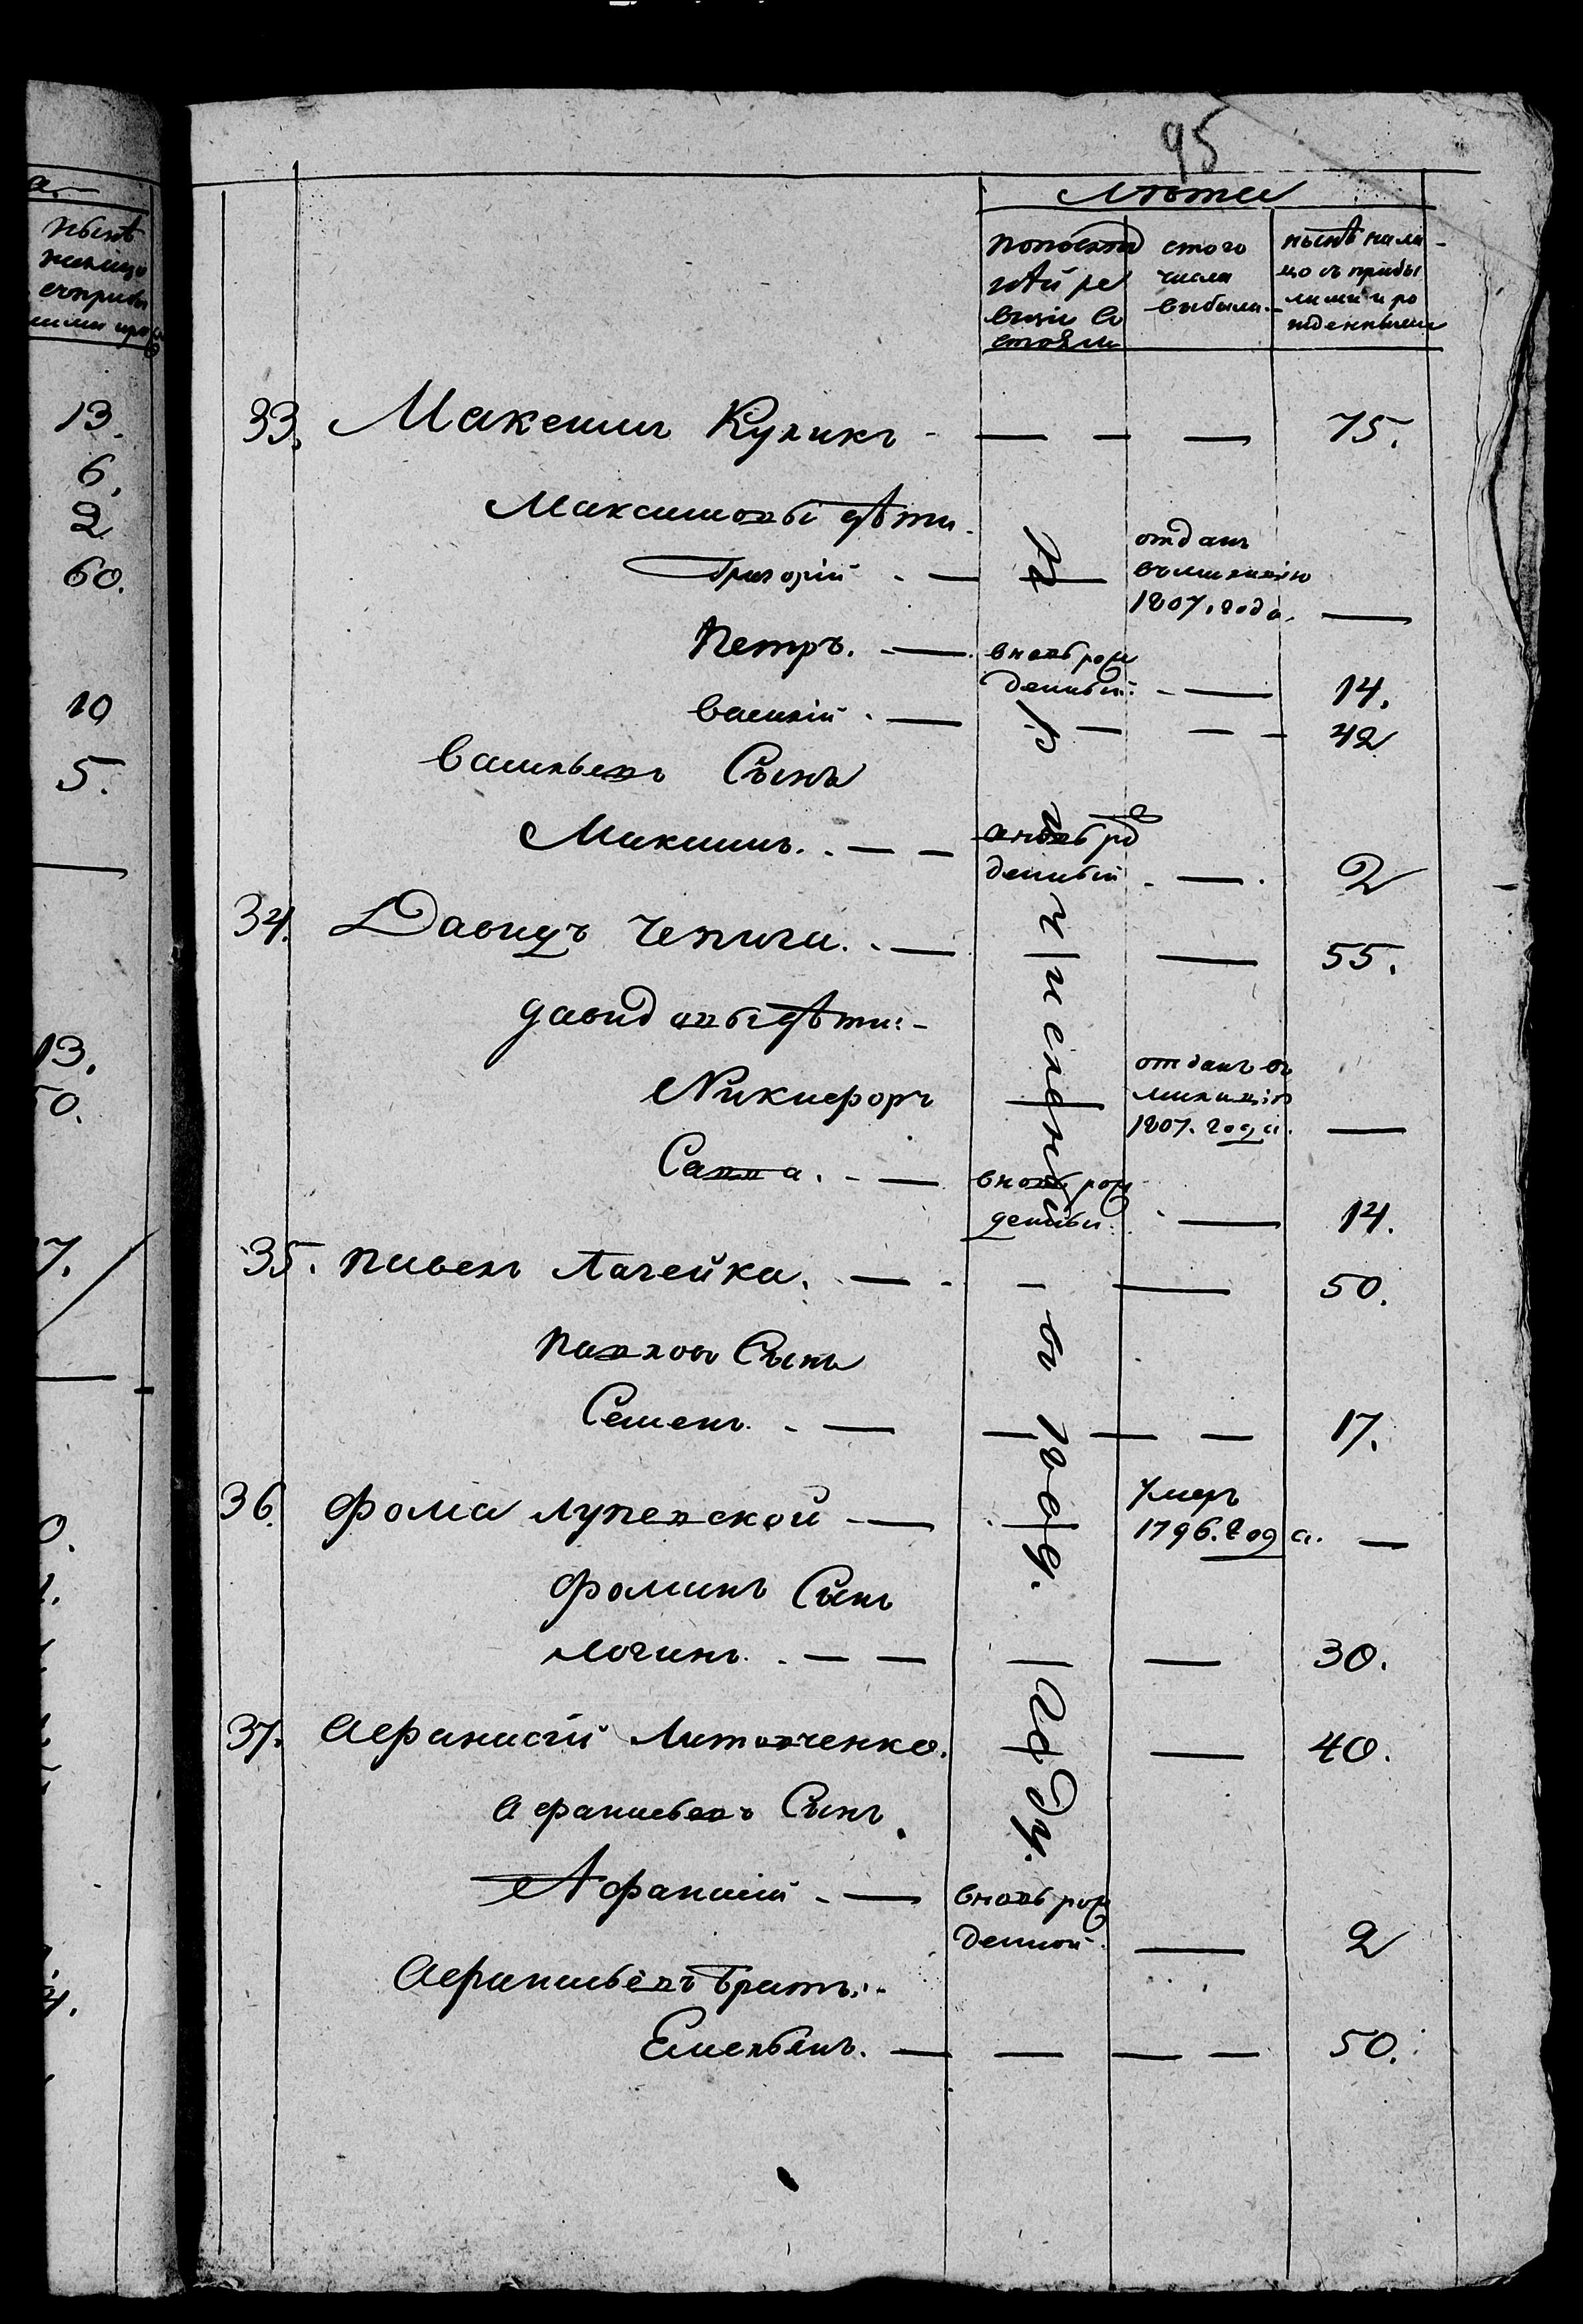 95
Лѣта
по послѣд
нѣй ре
визіи со
стояли
с того
числа
выбыли
нынѣ нали
цо съ прибы
лыми и ро
жденными
33. Максимъ Куликъ — — — 75.
Максимовы дѣти
Григорій — отданъ
въ милицію
1807. года. —
Петръ. — вновь рож
денный — 14.
Василій — — — 42
Васильевъ Сынъ
Максимъ. — — вновь рож
денный — 2
34. Давидъ Чепига. — — 55.
Давидовы дѣти
Никифоръ отданъ въ
милицію
1807. года. —
Савва. — вновь рож
денный — 14.
35. Павелъ Лагейка. — — — 50.
Павловъ Сынъ
Семенъ. — — — — 17.
36. Фома Лупевской — умеръ
1796. года. —
Фоминъ Сынъ
Логинъ. — — — — 30.
37. Афанасій Литовченко. — 40.
Афанасьевъ Сынъ
Афанасій — вновь рож
денной — 2
Афанасьевъ братъ
Емельянъ. — — — — 50.
въ 1808. году.
нынѣ
налицо
съ прибы
13.
6.
2
60.
10
5.
13.
50.
7.